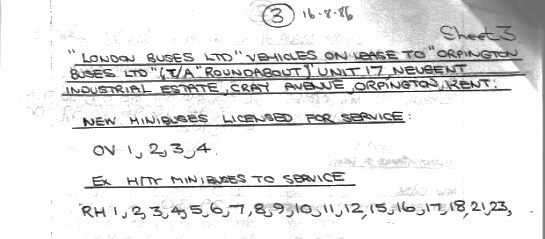 3 16.8.86
Sheet 3
"LONDON BUSES LTD" VEHICLES ON LEASE TO "ORPINGTON
BUSES LTD" (T/A "ROUNDABOUT) UNIT 17, NUGENT
INDUSTRIAL ESTATE, CRAY AVENUE, ORPINGTON, KENT.
NEW MINIBUSES LICENSED FOR SERVICE:
OV 1, 2, 3, 4.
EX MINIBUSES TO SERVICE
RH 1, 2, 3, 4, 5, 6, 7, 8, 9, 10, 11, 12, 15, 16, 17, 18, 21, 23,